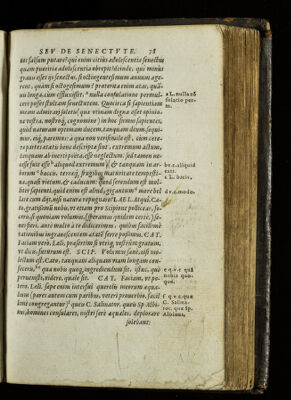 SEV DE SENECTVTE. 78
tos falsum putare? qui enim citius adolescentiæ senectus
quàm pueritiæ adolescentia obrepit? deinde, qui minus
grauis esset ijs senectus, si octingentesimum annum age-
rent, quàm si octogesimum? præterita enim ætas, quã-
uis longa, cùm effluxisset, nulla consolatione permul-
cere posset stultam senectutem. Quocirca si sapientiam
meam admirari soletis (quæ vtinam digna esset opinio-
ne vestra, nostroq́; cognomine) in hoc sumus sapientes,
quòd naturam optimam ducem, tanquam deum, sequi-
mur, eiq́; paremus: à qua non verisimile est, cùm cete-
ræ partes ætatis bene descriptæ sint, extremum actum,
tanquam ab inerti poëta, esse neglectum. sed tamen ne-
cesse fuit esse aliquid extremum, & tanquam in ar-
borum baccis, terræq́; frugibus maturitate tempesti-
ua, quasi vietum, & caducum: quod ferendum est mol-
liter sapienti. quid enim est aliud, gigantum more bel
lare cum dijs, nisi naturæ repugnare? LAEL. Atqui, Ca-
to, gratissimũ nobis, vt etiam pro Scipione pollicear, fe-
ceris, si, quoniam volumus, speramus quidem certè, se-
nes fieri, antè multo à te didicerimus, quibus facillimè
rationibus ingrauescentem ætatẽ ferre possimus. CAT.
Faciam verò, Læli, præsertim si vtriq; vestrûm gratum,
vt dicis, futurum est. SCIP. Volumus sanè, nisi mo-
lestum est, Cato, tanquam aliquam viam longam con-
feceris, qua nobis quoq; ingrediendum sit, istuc, quò
peruenisti, videre, quale sit. CAT. Faciam, vt po-
tero, Læli. sæpe enim interfui querelis meorum æqua-
lium (pares autem cum paribus, veteri prouerbio, facil
limè congregantur) quæ C. Salinator, quæ Sp. Albi-
nus, homines consulares, nostri ferè æquales, deplorare
solebant:
a L. nulla cõ
solatio per-
m.
b v.c. aliquid
c L. bacis.
d v.c. modo.
e q v. c. quâ
nobis quo-
que.
f q v. c. quæ
C. Salina-
tor. quæ Sp.
Albinus.